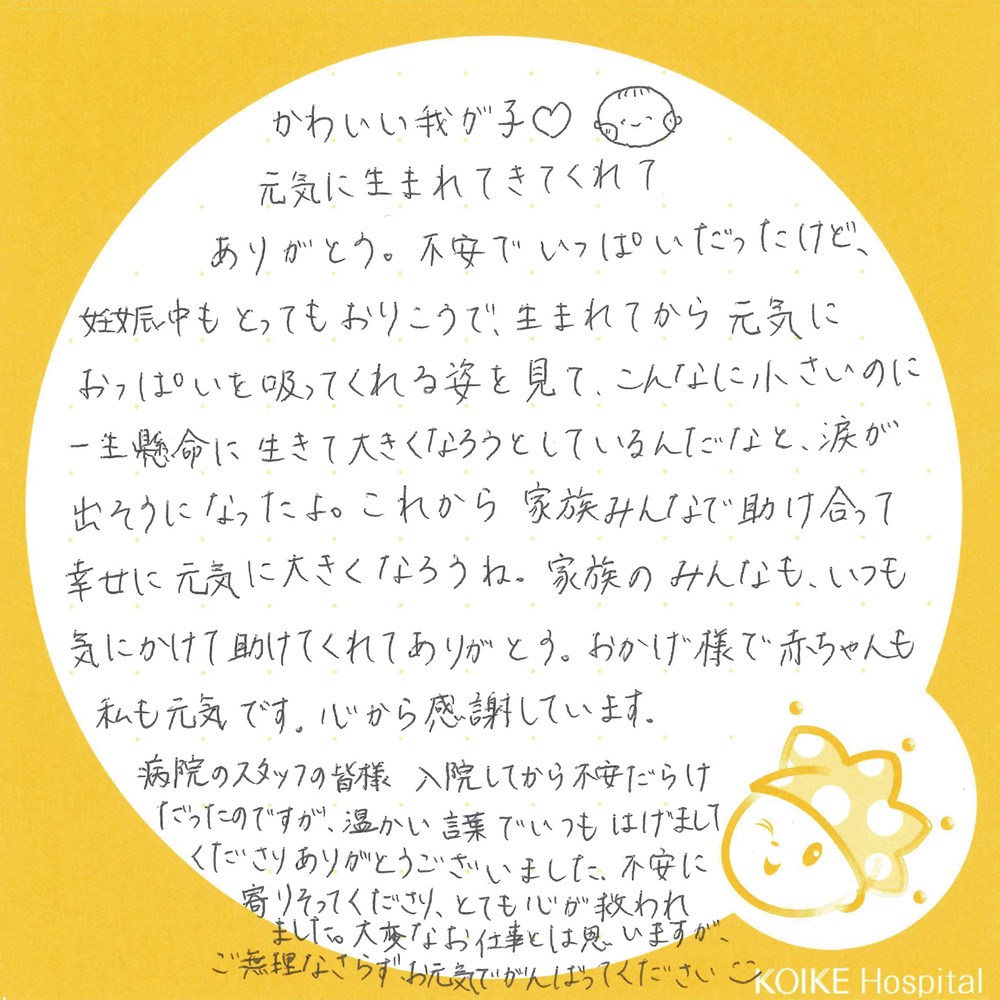 かわいい我が子♡
元気に生まれてきてくれて
ありがとう。不安でいっぱいだったけど、
妊娠中もとってもおりこうで、生まれてから元気に
おっぱいを吸ってくれる姿を見て、こんなに小さいのに
一生懸命に生きて大きくなろうとしているんだなと、涙が
出そうになったよ。これから家族みんなで助け合って
幸せに元気に大きくなろうね。家族のみんなも、いつも
気にかけて助けてくれてありがとう。おかげ様で赤ちゃんも
私も元気です。心から感謝しています。
病院のスタッフの皆様 入院してから不安だらけ
だったのですが、温かい言葉でいつもはげまして
くださりありがとうございました、不安に
寄りそってくださり、とても心が救われ
ました。大変なお仕事とは思いますが、
ご無理なさらず、お元気でがんばってください
KOIKE Hospital